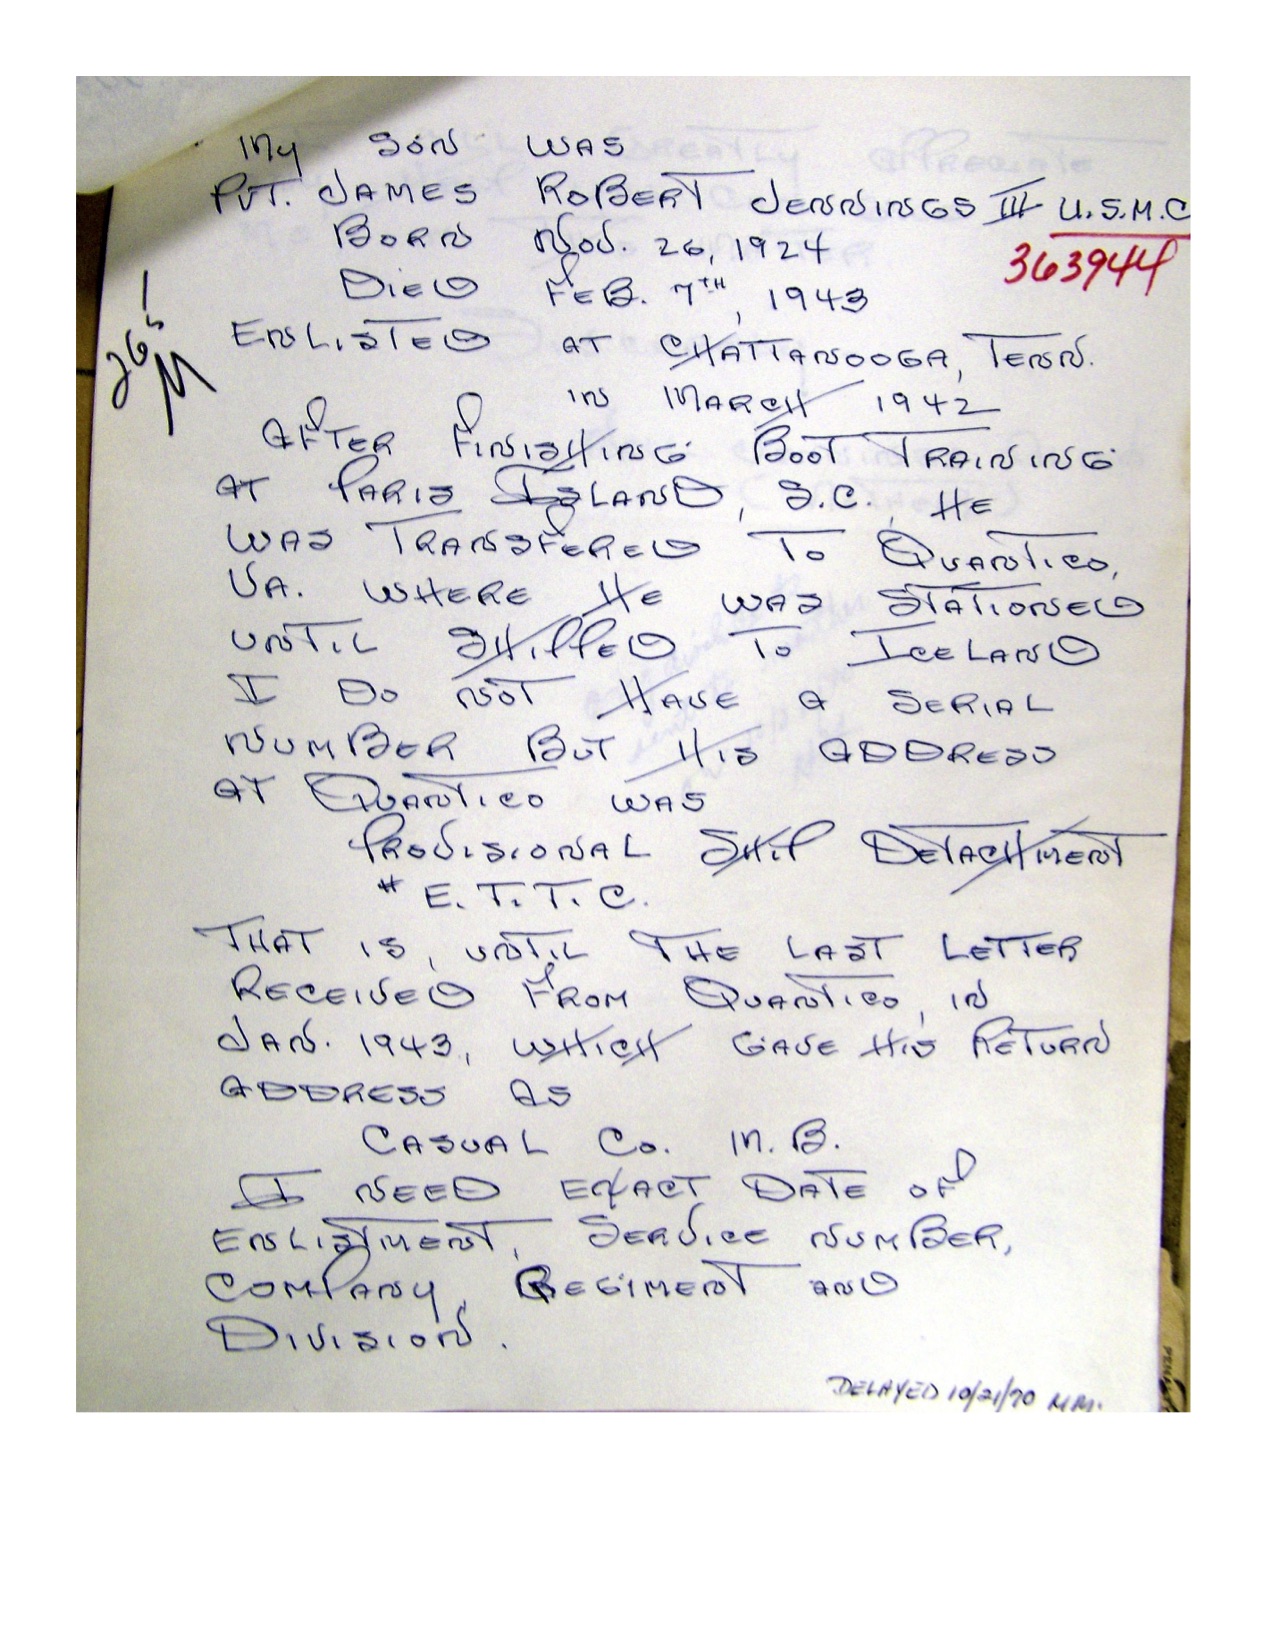 My SON WAS
PVT. JAMES ROBERT JENNINGS III U.S.M.C
363944
BORN NOV. 26, 1924
DIED FEB. 7TH, 1943
ENLISTED AT CHATTANOOGA, TENN.
IN MARCH 1942
AFTER FINISHING BOOT TRAINING
AT PARIS ISLAND, S.C., HE
WAS TRANSFERED TO QUANTICO,
VA. WHERE HE WAS STATIONED
UNTIL SHIPPED TO ICELAND
I DO NOT HAVE A SERIAL
NUMBER BUT HIS ADDRESS
AT QUANTICO WAS
PROVISIONAL SHIP DETACHMENT
# E. T. T. C.
THAT IS, UNTIL THE LAST LETTER
RECEIVED FROM QUANTICO, IN
JAN. 1943, WHICH GAVE HIS RETURN
ADDRESS AS
CASUAL Co. M. B.
I NEED EXACT DATE OF
ENLISTMENT, SERVICE NUMBER,
COMPANY, REGIMENT AND
DIVISION.
DELAYED 10/21/70 M.M.